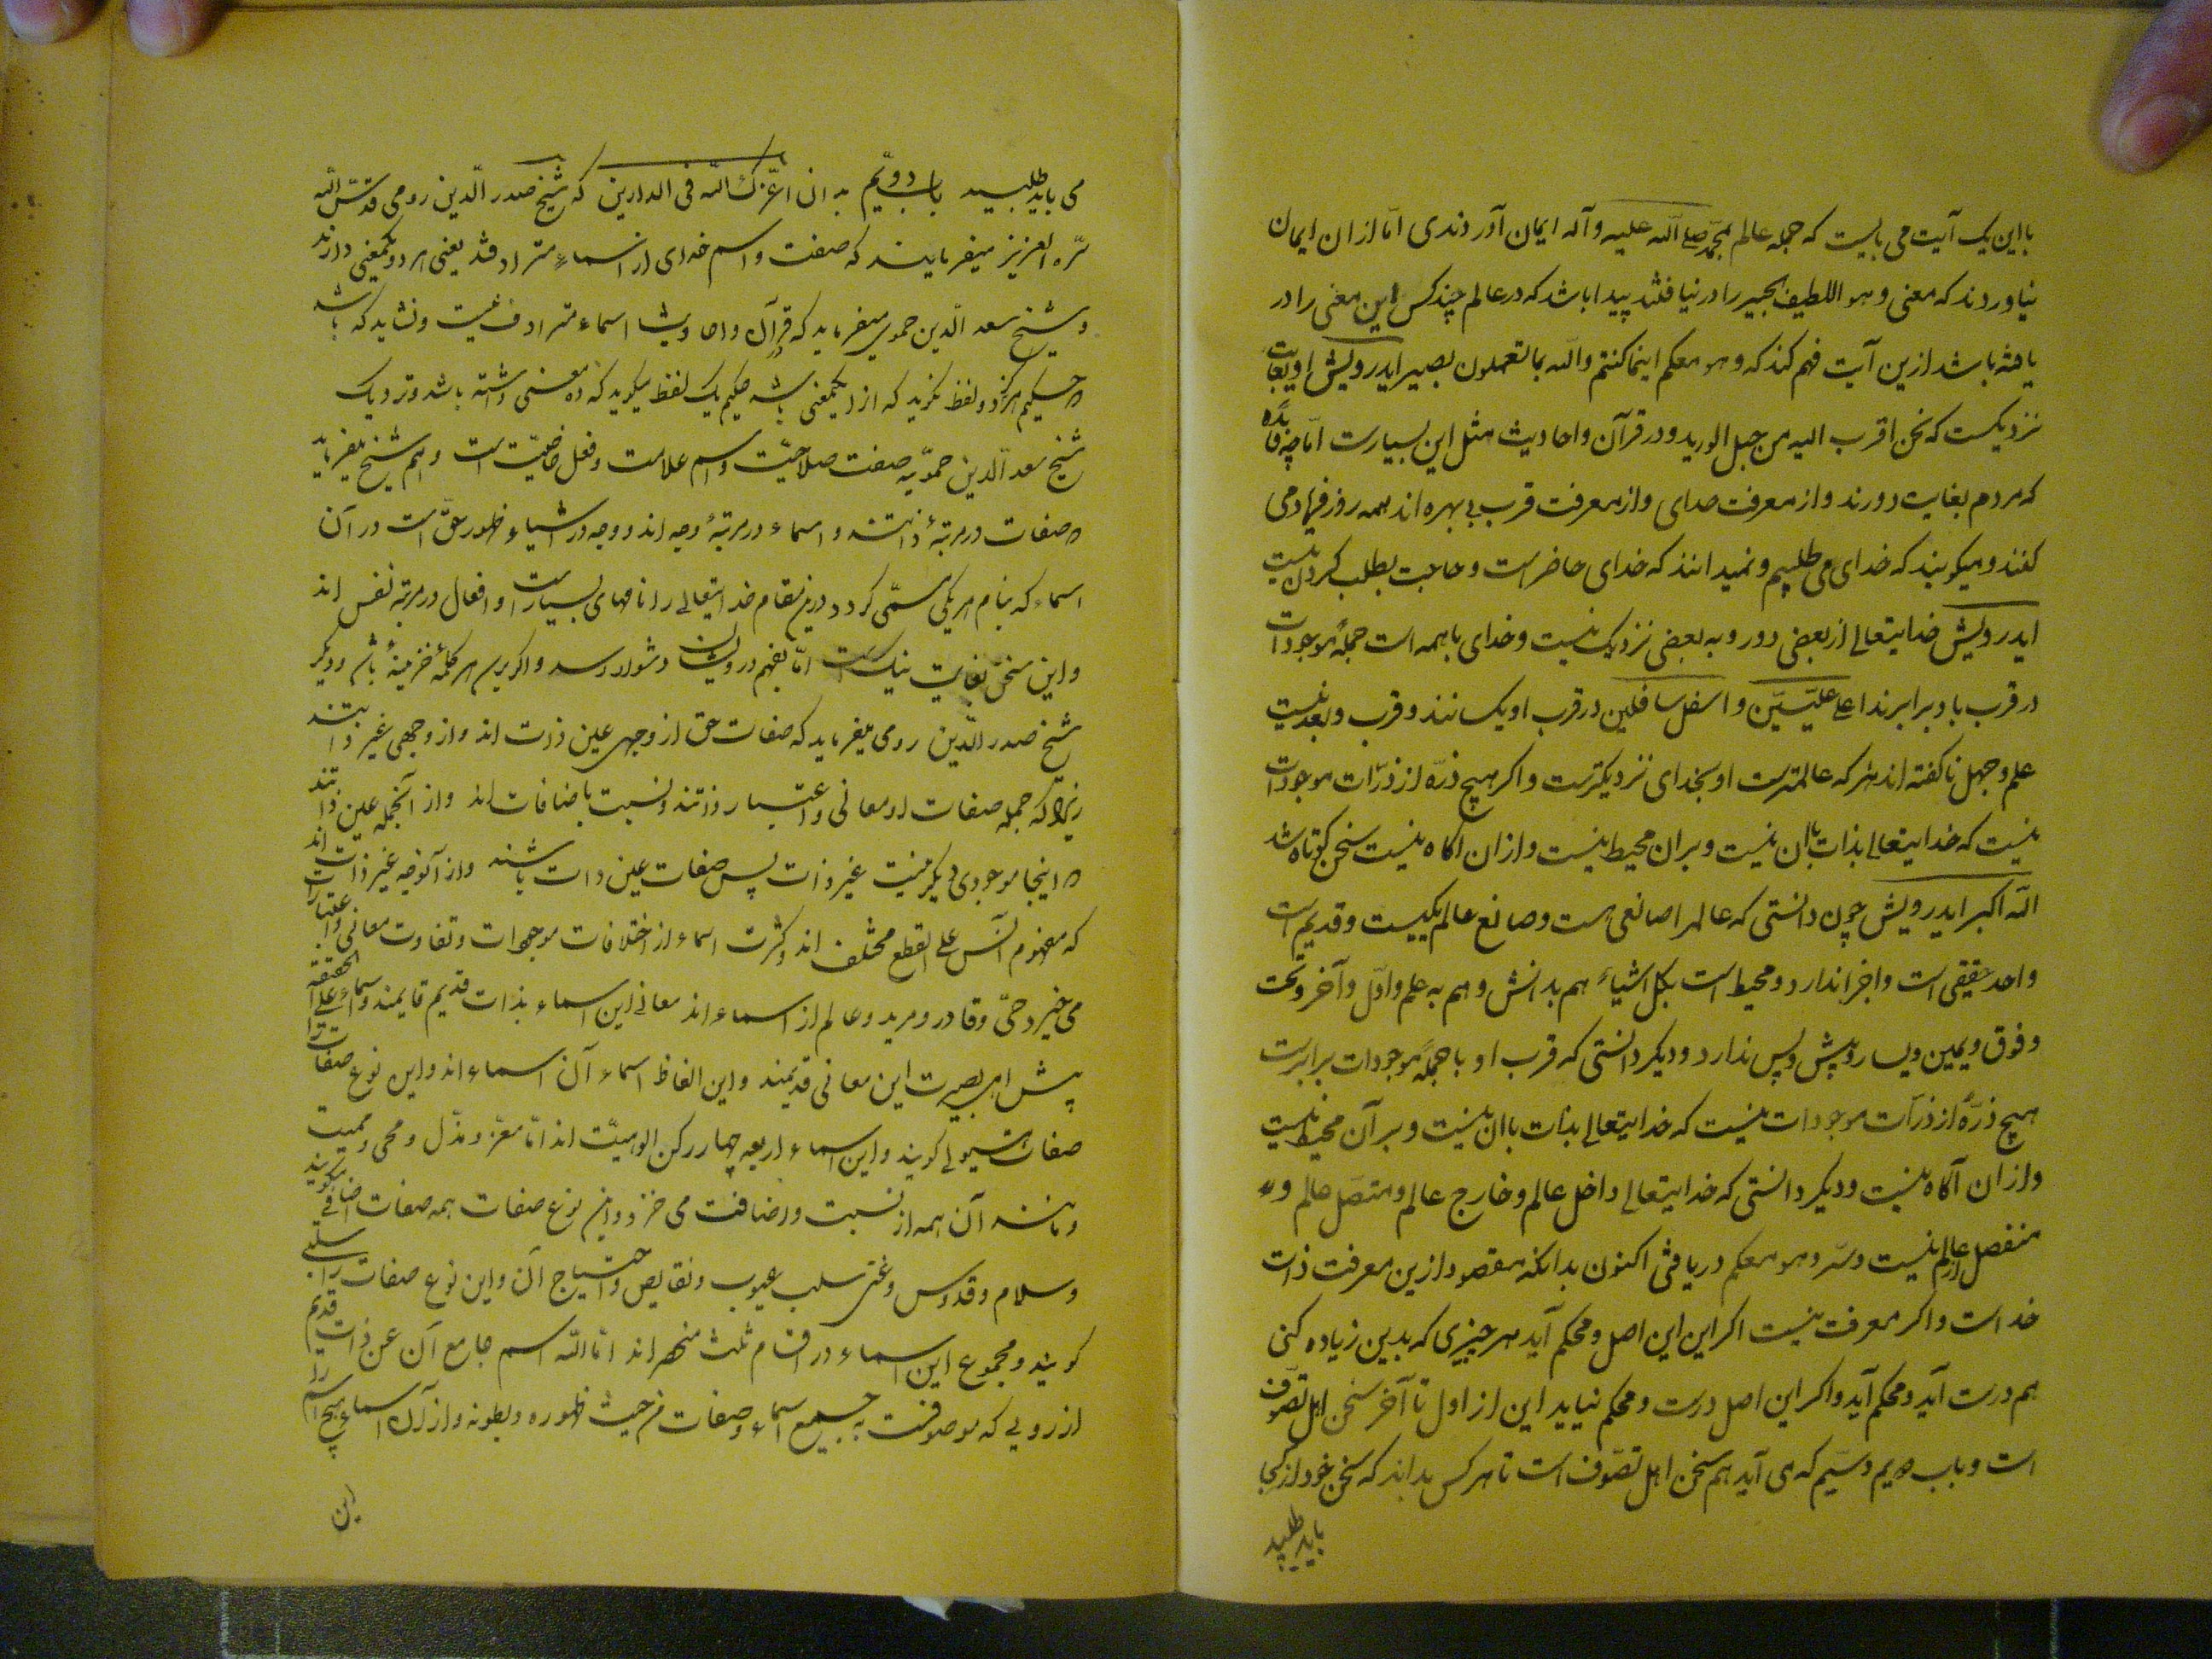 با این یک آیت می بایست که جمله عالم بمحمد صلی الله علیه و آله ایمان آوردندی امّا ازان ایمان
نیاوردند که معنی و هو اللطیف الخبیر را درنیافتند پیدا باشد که در عالم چند کس این معنی را در
یافته باشد ازین آیت فهم کند که و هو معکم اینما کنتم والله بما تعملون بصیر ایدرویش او بغایت
نزدیکست که نحن اقرب الیه من حبل الورید و در قرآن و احادیث مثل این بسیارست امّا چه فایده
که مردم بغایت دورند و از معرفت خدای و از معرفت قرب بی بهره اند همه روز فریاد می
کنند و میکویند که خدای می طلبیم و نمیدانند که خدای حاضر است و حاجت بطلب کردن نیست
ایدرویش خدایتعالی از بعضی دور و به بعضی نزدیک نیست و خدای با همه است جملهٔ موجودات
در قرب با او برابرند اعلی علیّین و اسفل سافلین در قرب او یکسانند و قرب و بعد نسبت
علم و جهل ما کفته اند هر که عالمترست او بخدای نزدیکترست و اکر هیچ ذرّه از ذرّات موجودات
نیست که خدایتعالی بذات با آن نیست و بر آن محیط نیست و ازان آکاه نیست سخن کوتاه شد
الله اکبر ایدرویش چون دانستی که عالم را صانعی هست و صانع عالم یکیست و قدیم است
واحد حقیقی است و اجزا ندارد و محیط است بکل اشیاء هم بدانش و هم به علم و اوّل و آخر و تحت
و فوق و یمین و یسار و پیش و پس ندارد و دیکر دانستی که قرب او با جملهٔ موجودات برابرست
هیچ ذرّهٔ از ذرّات موجودات نیست که خدایتعالی بذات با آن نیست و بر آن محیط نیست
و ازان آکاه نیست و دیکر دانستی که خدایتعالی داخل عالم و خارج عالم و متصّل عالم و
منفصل عالم نیست و سرّ و هو معکم دریافتی اکنون بدانکه مقصود ازین معرفت ذات
خداست و اکر معرفت نیست اکر این این اصل و محکم آید هر چیزی که بدین زیاده کنی
هم درست آید و محکم آید و اکر این اصل درست و محکم نیاید این از اول تا آخر سخن اهل تصّوف
است و باب دویم و سیّم که می آید هم سخن اهل تصّوف است تا هر کس بداند که سخن خود از کجا
باید طلبید
می باید طلبید باب دویّم بدان اعزّک الله فی الدارین که شیخ صدر الّدین رومی قدّس الله
سّره العزیز میفرمایند که صفت و اسم خدای از اسماء مترادفند یعنی هر دو یکمعنی دارند
و شیخ سعد الّدین حموی میفرماید که در قرآن و احادیث اسماء مترادف نیست و نشاید که باشد
که حکیم هرکز دو لفظ نکوید که از او یکمعنی باشد حکیم یک لفظ میکوید که ده معنی داشته باشد و نزدیک
شیخ سعد الّدین حمّویه صفت صلاحیّت و اسم علامت و فعل خاصیّت است و هم شیخ میفرماید
که صفات در مرتبهٔ ذاتند و اسماء در مرتبهٔ وجه اند و وجه در اشیاء ظهور حقّ است در آن
اسماء که بنام هر یکی مسمّی کردد درین مقام خدایتعالی را نامهای بسیار است و افعال در مرتبه نفس اند
و این سخن بغایت نیک است امّا بفهم درویشان دشوار رسد و اکر برسد هر کلمهٔ خزینهٔ باشد و دیکر
شیخ صدر الّدین رومی میفرماید که صفات حق از وجهی عین ذات اند و از وجهی غیر ذاتند
زیرا که جمله صفات او معانی و اعتبار ذاتند و نسبت باضافات اند و از آنجمله عین ذاتند
که اینجا موجودی دیکر نیست غیر ذات پس صفات عین ذات باشند و از آنوجه غیر ذات اند
که مفهوم آنس علی القطع مختلف اند و کثرت اسماء از اختلافات موجودات و تفاوت معانی و اعتبارات
می خیزد حّی و قادر و مرید و عالم از اسماء اند معانی این اسماء بذات قدیم قایمند و اسماء علی الحقیقة
پیش اهل بصیرت این معانی قدیمند و این الفاظ اسماء آن اسماء اند و این نوع صفات را
صفات ثبوتی کویند و این اسماء اربعه چهار رکن الوهیّت اند امّا معّز و مذّل و محی و ممیت
و مانند آن همه از نسبت و اضافت می خیزد و این نوع صفات همه صفات اضافی کویند
و سلام و قدوس و غنی سلب عیوب و نقایص و احتیاج آن و این نوع صفات را سلبی
کویند و مجموع این اسماء در اقسام ثلث منحصر اند امّا الله اسم جامع آن عن ذات قدیم
از رویی که موصوفست به جمیع اسماء و صفات من حیث ظهوره و بطونه و از آن اسماء هیچ اسم را
این